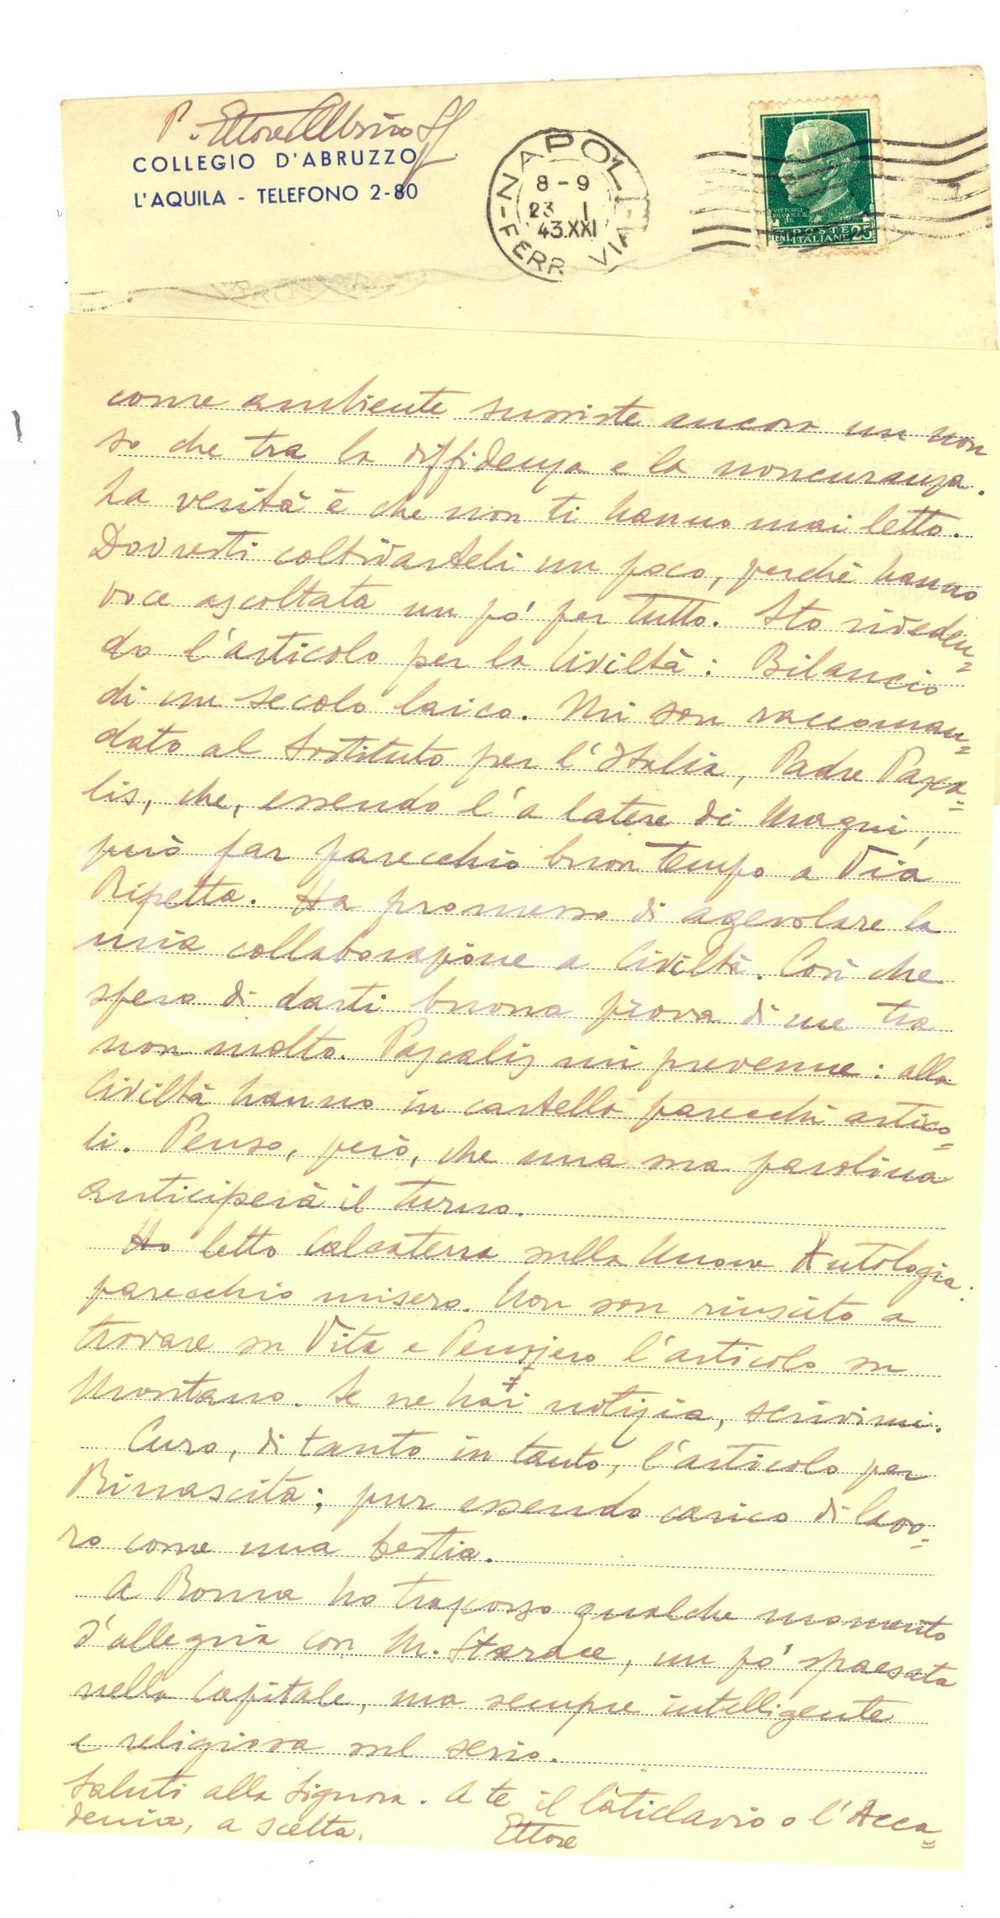 P. Ettore Albino SJ
COLLEGIO D'ABRUZZO
L'AQUILA - TELEFONO 2-80
NAPOLI
8-9
23 1
43.XXI
FERR VIA
POSTE
ITALIANE
25
come ambiente sussiste ancora un non
so che tra la diffidenza e la noncuranza.
La verità è che non ti hanno mai letto.
Dovresti coltivarteli un poco, perchè hanno
voce ascoltata un po' per tutto. Sto riveden=
do l'articolo per la Civiltà: Bilancio
di un secolo laico. Mi son raccoman=
dato al Sostituto per l'Italia, Padre Pasca=
lis, che, essendo l'a latere di Magni,
può far parecchio buon tempo a Via
Ripetta. Ha promesso di agevolare la
mia collaborazione a Civiltà. Così che
spero di darti buona prova di me tra
non molto. Pascalis mi prevenne: alla
Civiltà hanno in cartella parecchi artico=
li. Penso, però, che una sua parolina
anticiperà il turno.
Ho letto Calcaterra sulla Nuova Antologia:
parecchio misero. Non son riuscito a
trovare su Vita e Pensiero l'articolo su
Montano. Se ne hai notizia, scrivimi.
Curo, di tanto in tanto, l'articolo per
Rinascita; pur essendo carico di lavo=
ro come una bestia.
A Roma ho trascorso qualche momento
d'allegria con M. Starace, un po' spaesata
nella Capitale, ma sempre intelligente
e religiosa sul serio.
Saluti alla Signora. A te il laticlavio o l'Acca=
demia, a scelta.
Ettore